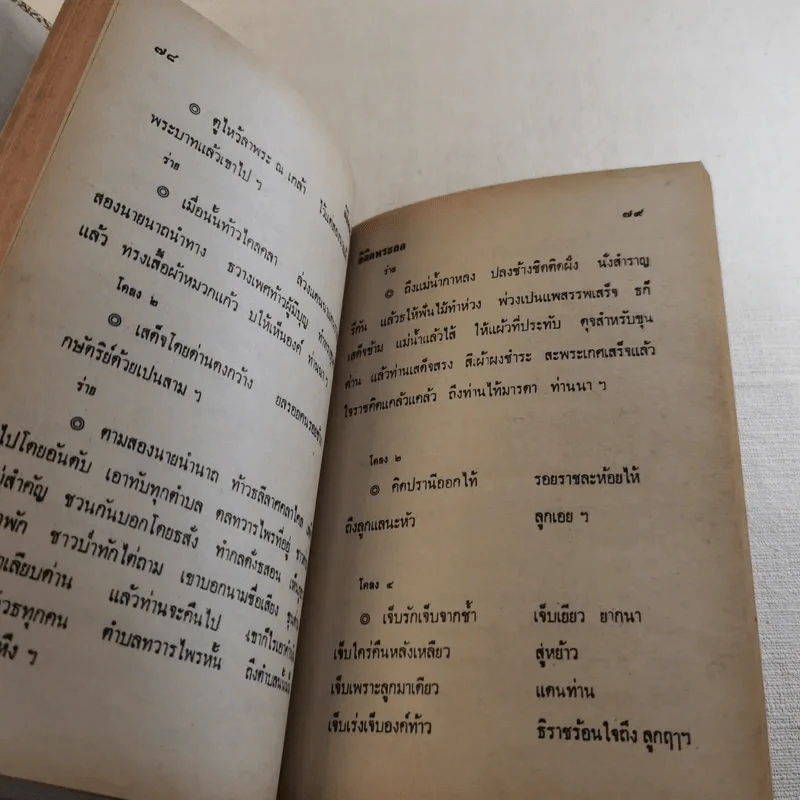 ๗๘
๏ ตูไหว้ลาพระ ณ เกล้า
พระบาทแล้วเขาไป ฯ
ร่าย
๏ เมื่อนั้นท้าวไคลคลา
สองนายนาถนำทาง ธวางเพศท้าวผู้มีบุญ
แล้ว ทรงเสื้อผ้าหมวกแก้ว บให้เห็นองค์ ท่านนา ฯ
โคลง ๒
๏ เสด็จโดยด่านดงกว้าง
กษัตริย์ด้วยเปนสาม ฯ
ร่าย
๏ ตามสองนายนำนาถ ท้าวธลีลาศคลาไคล
ไปโดยอันดับ เอาทับทุกตำบล ดลทวารไพรที่อยู่
สำคัญ ชวนกันบอกโดยธสั่ง ทำกลดั่งธสอน
พัก ชาวบ้านทักไต่ถาม เขาบอกนามชื่อเสียง
เลียบด่าน แล้วท่านจะคืนไป
ทุกคน ตำบลทวารไพรหั้น
หึง ฯ
๗๙
ลิลิตพระลอ
ร่าย
๏ ถึงแม่น้ำกาหลง ปลงช้างชิดติดฝั่ง นั่งสำราญ
รี่กัน แล้วธให้พั้นไม้ทำห่วง พ่วงเปนแพสรรพเสร็จ ธก็
เสด็จข้าม แม่น้ำแล้วไส้ ให้แผ้วที่ประทับ ดุจสำหรับขุน
ด่าน แล้วท่านเสด็จสรง สีเผ้าผงชำระ สะพระเกศเสร็จแล้ว
ใจราชคิดแคล้วแคล้ว ถึงท่านไท้มารดา ท่านนา ฯ
โคลง ๒
๏ คิดปรานีออกไท้ รอยราชละห้อยไห้
ถึงลูกแลนะหัว ลูกเอย ฯ
โคลง ๔
๏ เจ็บรักเจ็บจากช้ำ เจ็บเยียว ยากนา
เจ็บใคร่คืนหลังเหลียว สู่หย้าว
เจ็บเพราะลูกมาเดียว แดนท่าน
เจ็บเร่งเจ็บองค์ท้าว ธิราชร้อนใจถึง ลูกฤๅฯ